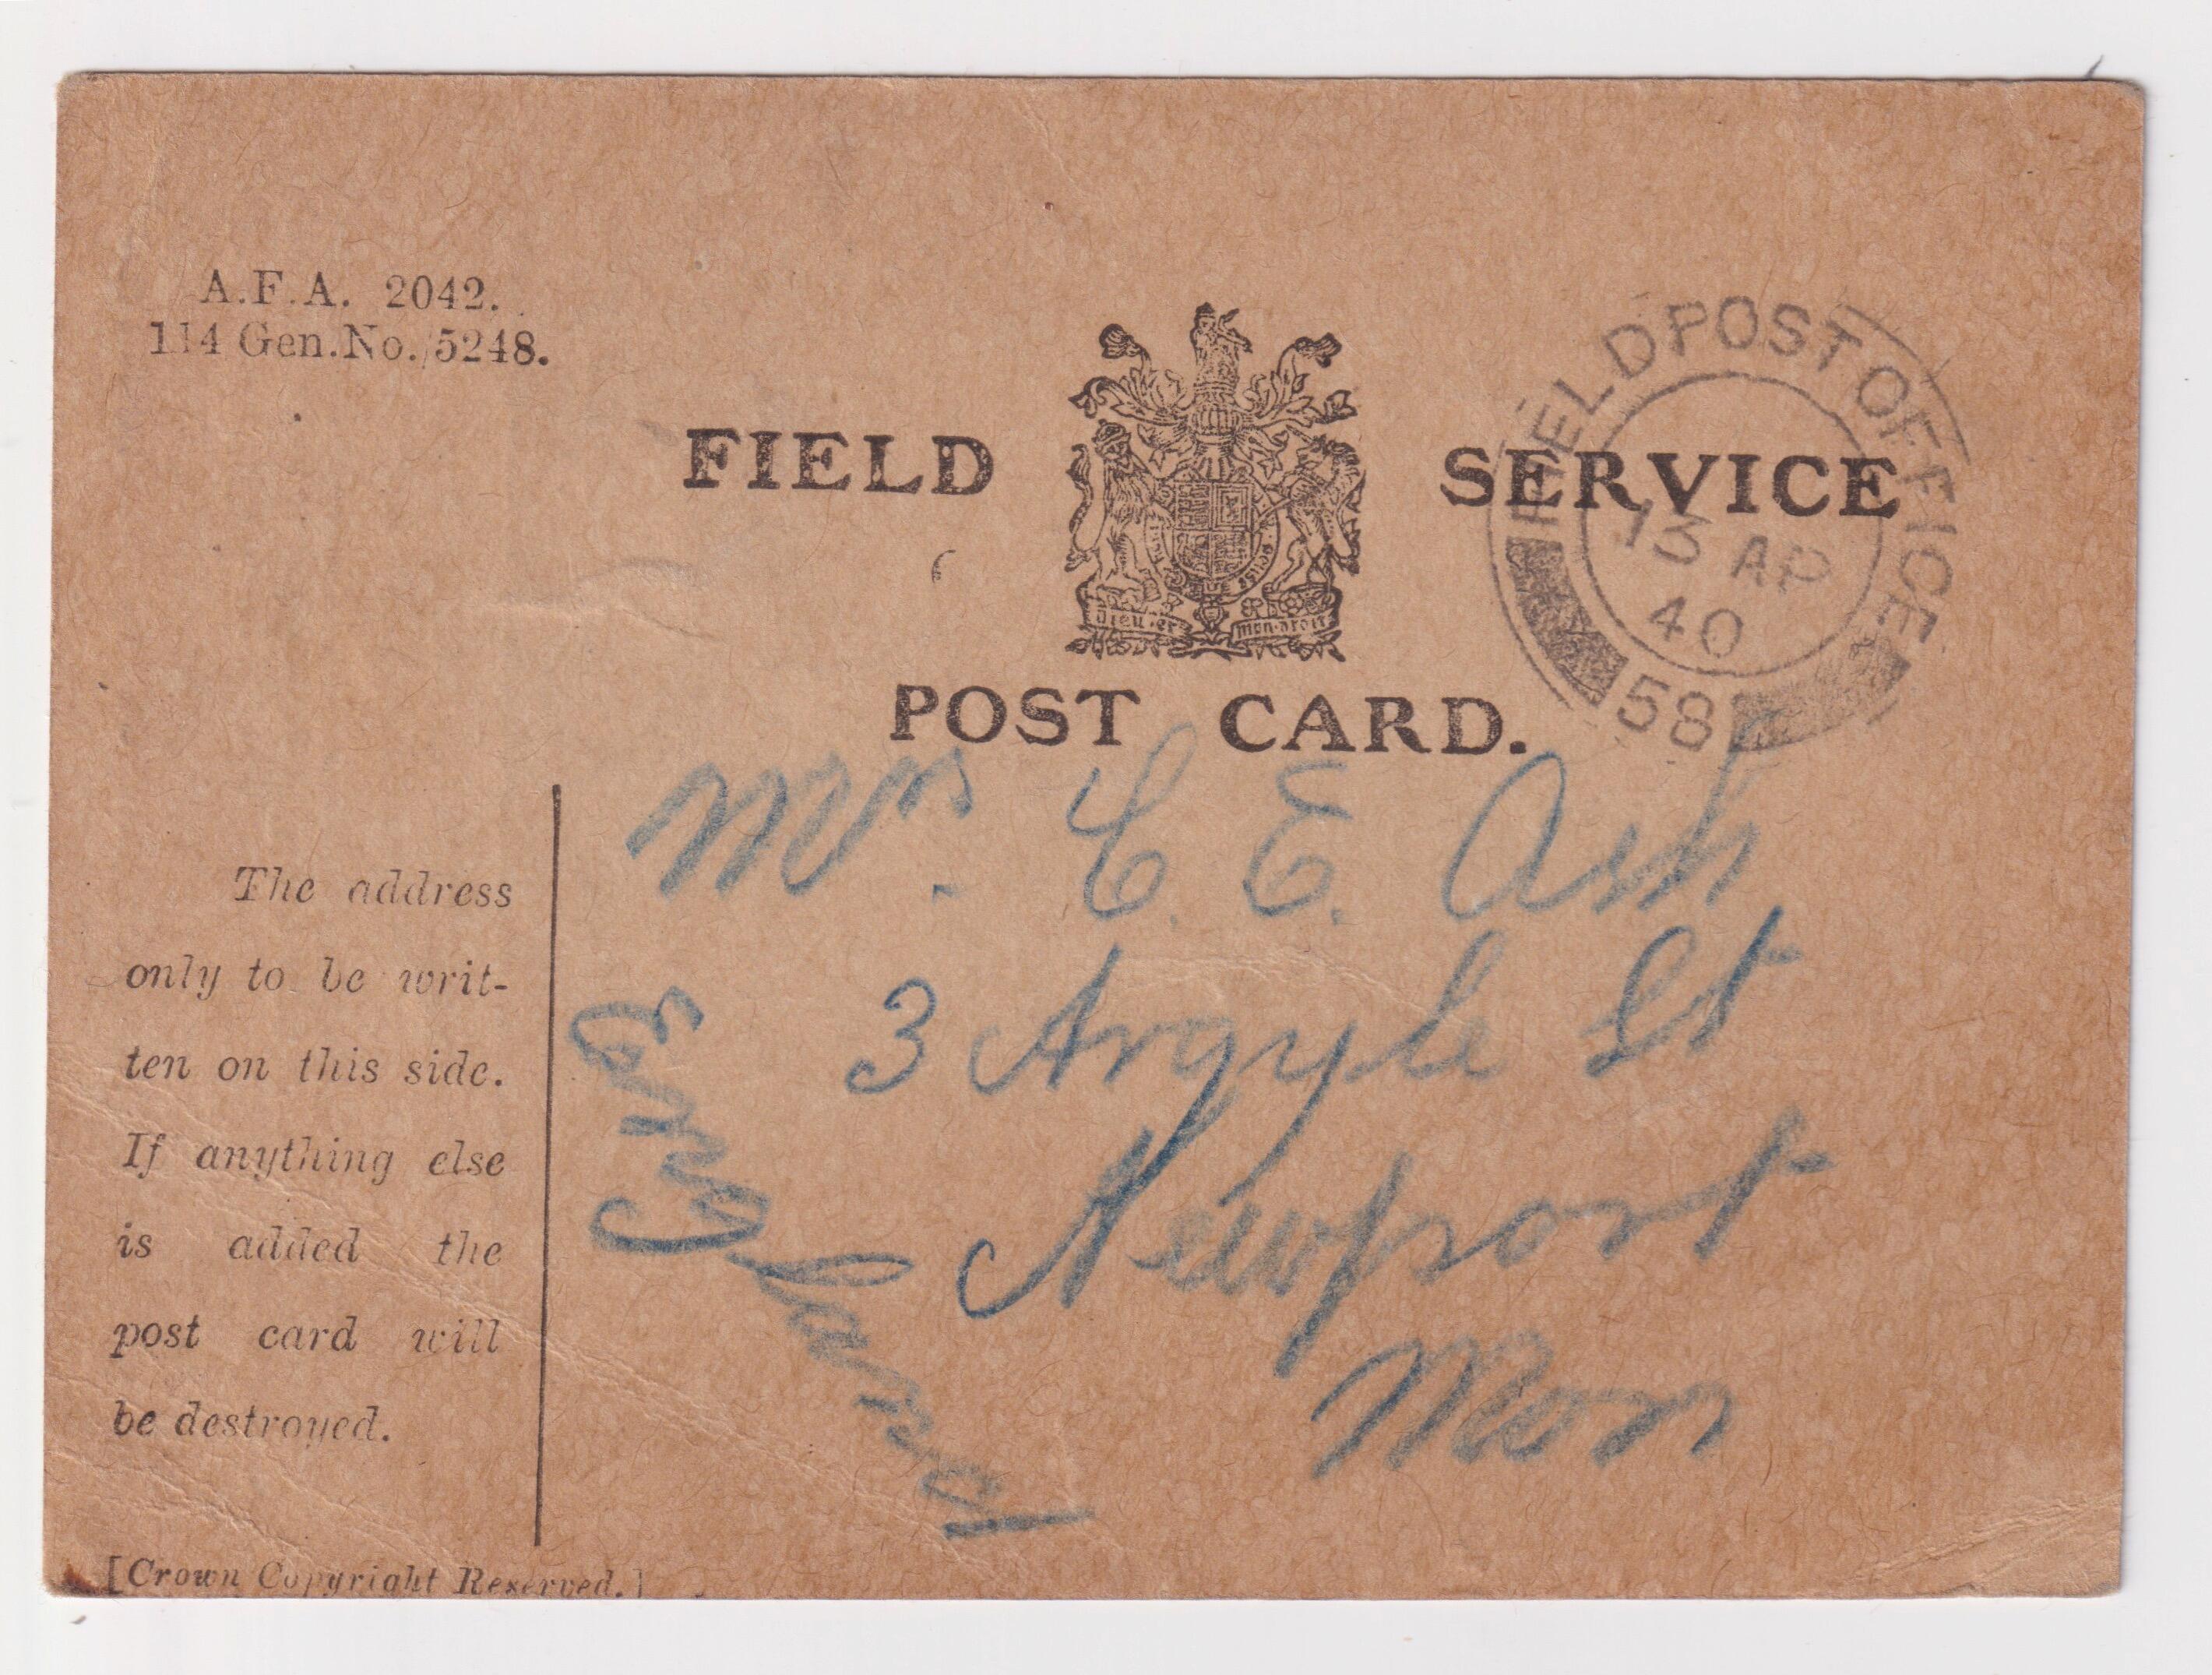 A.F.A. 2042.
114 Gen.No./5248.
FIELD SERVICE
POST CARD.
DIEU ET MON DROIT
FIELD POST OFFICE
13 AP
40
58
The address
only to be writ-
ten on this side.
If anything else
is added the
post card will
be destroyed.
[Crown Copyright Reserved.]
Mrs. C. E. Ash
3 Argyle St
Newport
Mon
England